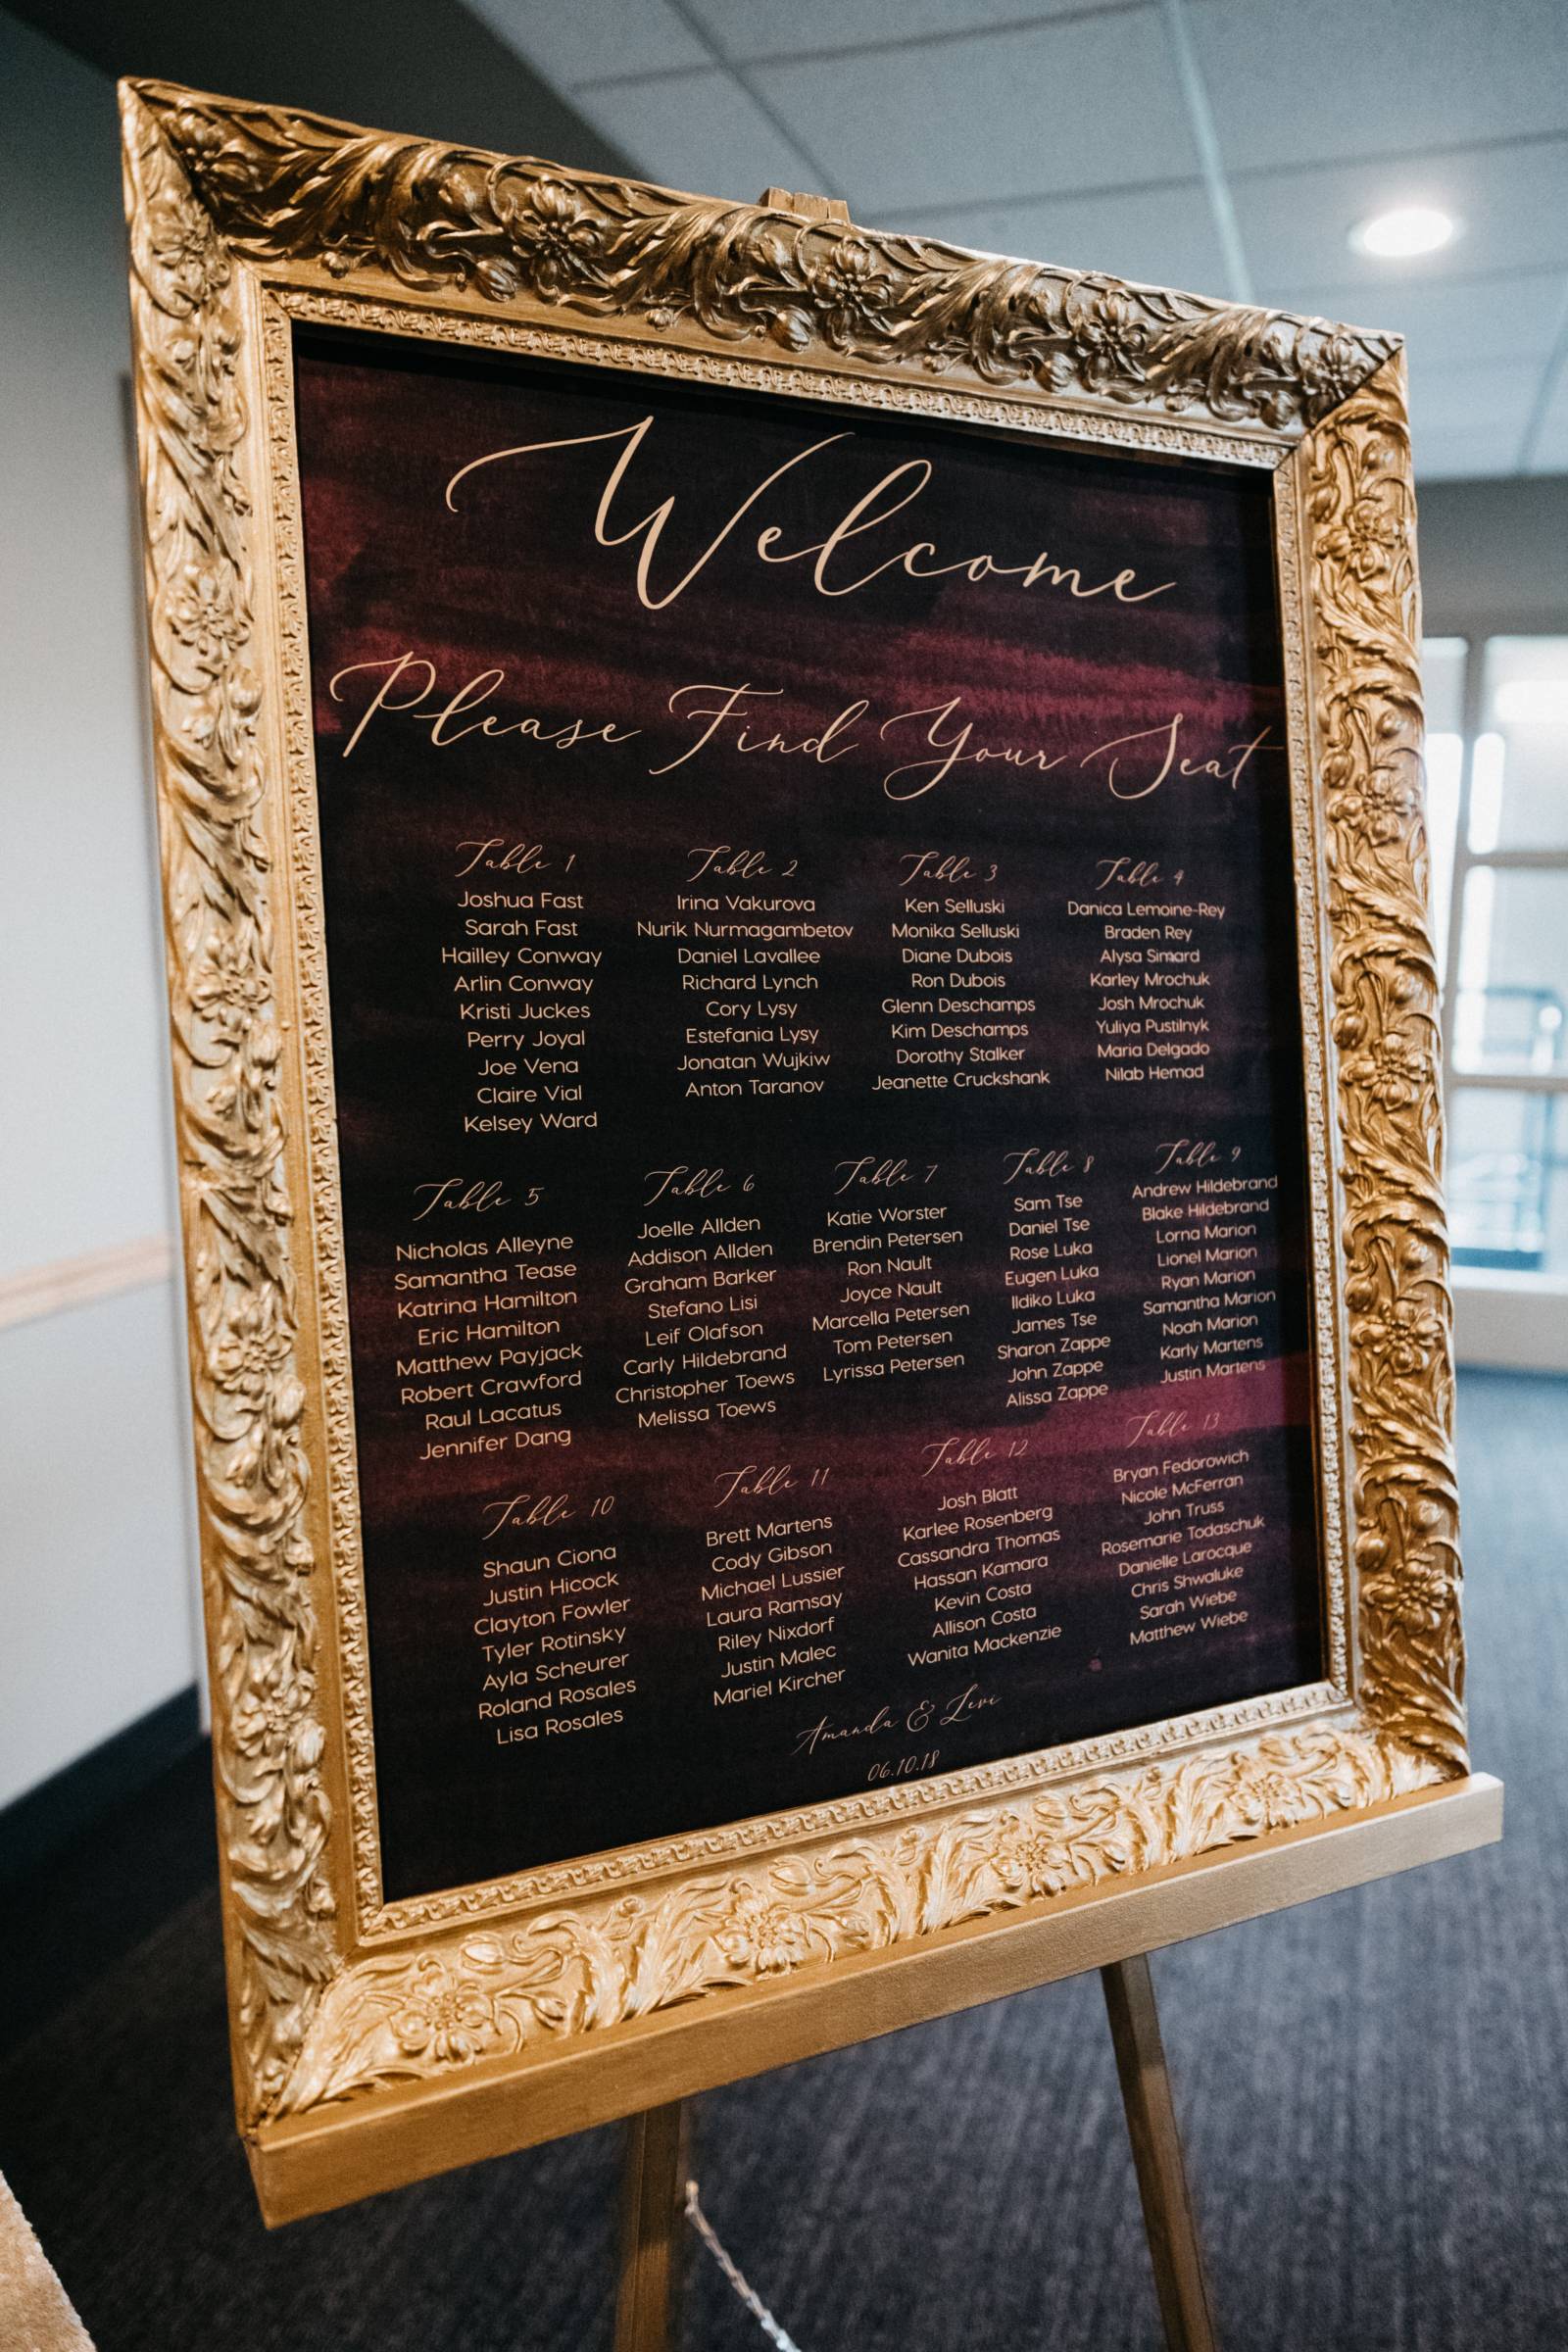 Welcome
Please Find Your Seat
Table 1
Joshua Fast
Sarah Fast
Hailley Conway
Arlin Conway
Kristi Juckes
Perry Joyal
Joe Vena
Claire Vial
Kelsey Ward
Table 2
Irina Vakurova
Nurik Nurmagambetov
Daniel Lavallee
Richard Lynch
Cory Lysy
Estefania Lysy
Jonatan Wujkiw
Anton Taranov
Table 3
Ken Selluski
Monika Selluski
Diane Dubois
Ron Dubois
Glenn Deschamps
Kim Deschamps
Dorothy Stalker
Jeanette Cruckshank
Table 4
Danica Lemoine-Rey
Braden Rey
Alysa Simard
Karley Mrochuk
Josh Mrochuk
Yuliya Pustilnyk
Maria Delgado
Nilab Hemad
Table 5
Nicholas Alleyne
Samantha Tease
Katrina Hamilton
Eric Hamilton
Matthew Payjack
Robert Crawford
Raul Lacatus
Jennifer Dang
Table 6
Joelle Allden
Addison Allden
Graham Barker
Stefano Lisi
Leif Olafson
Carly Hildebrand
Christopher Toews
Melissa Toews
Table 7
Katie Worster
Brendin Petersen
Ron Nault
Joyce Nault
Marcella Petersen
Tom Petersen
Lyrissa Petersen
Table 8
Sam Tse
Daniel Tse
Rose Luka
Eugen Luka
Ildiko Luka
James Tse
Sharon Zappe
John Zappe
Alissa Zappe
Table 9
Andrew Hildebrand
Blake Hildebrand
Lorna Marion
Lionel Marion
Ryan Marion
Samantha Marion
Noah Marion
Karly Martens
Justin Martens
Table 10
Shaun Ciona
Justin Hicock
Clayton Fowler
Tyler Rotinsky
Ayla Scheurer
Roland Rosales
Lisa Rosales
Table 11
Brett Martens
Cody Gibson
Michael Lussier
Laura Ramsay
Riley Nixdorf
Justin Malec
Mariel Kircher
Table 12
Josh Blatt
Karlee Rosenberg
Cassandra Thomas
Hassan Kamara
Kevin Costa
Allison Costa
Wanita Mackenzie
Table 13
Bryan Fedorowich
Nicole McFerran
John Truss
Rosemarie Todaschuk
Danielle Larocque
Chris Shwaluke
Sarah Wiebe
Matthew Wiebe
Amanda & Levi
06.10.18